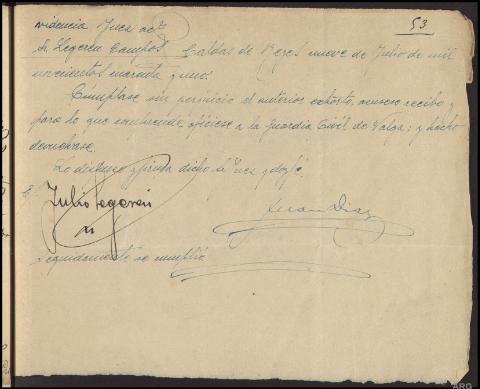 53
videncia Juez actl
Sr. Legeren Campos Caldas de Reyes nueve de Julio de mil
novecientos cuarenta y uno.
Cúmplase sin perjuicio el anterior exhorto, acusese recibo y
para lo que se ofíciese a la Guardia Civil de Valga; y hecho
devuelvase.
Lo dispuso y firma dicho Sr Juez y doy fé.
Julio Legeren
Juan Diaz
Seguidamente se cumplió
ARG